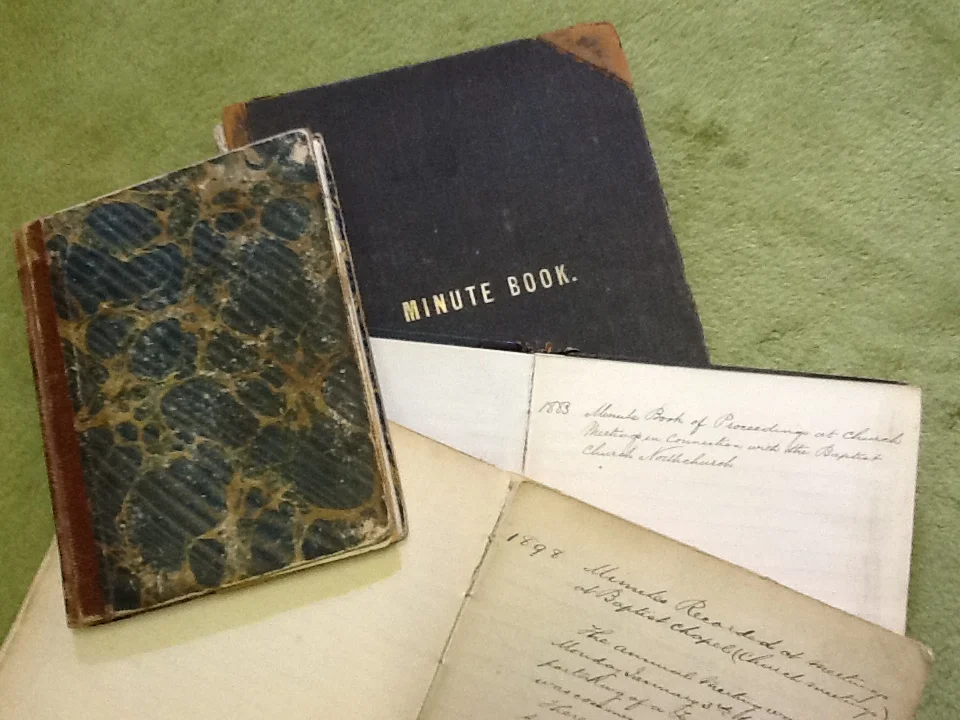 MINUTE BOOK.
1883 Minute Book of Proceedings at Church
Meetings in Connection with the Baptist
Church Northchurch
1898
Minutes Recorded at meetings
at Baptist Chapel (Church meetings)
The annual Meeting
Monday January
partaking of a
was
There